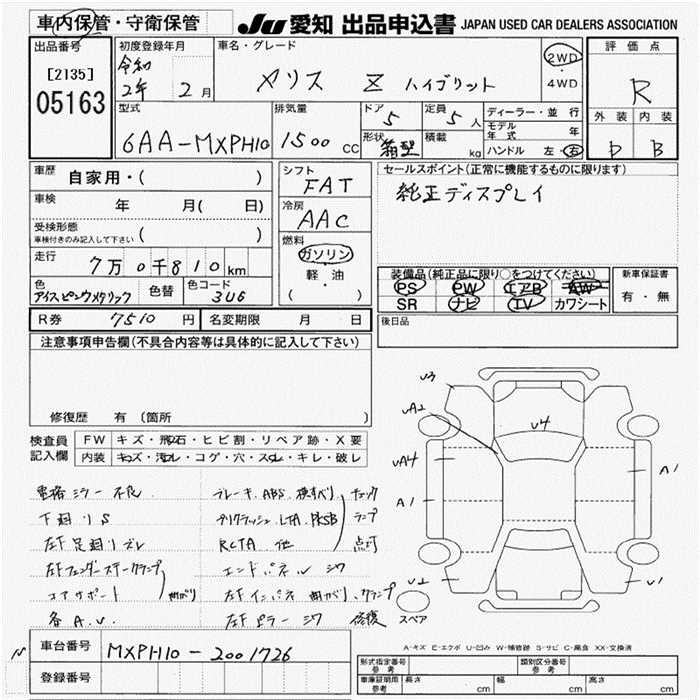 車内保管・守衛保管
JU 愛知 出品申込書 JAPAN USED CAR DEALERS ASSOCIATION
出品番号
[2135]
05163
初度登録年月
令和
2年 2月
車名・グレード
ヤリス Z ハイブリット
2WD
・
4WD
評価点
R
型式
6AA-MXPH10
排気量
1500 cc
ドア
5
定員
5人
形状
箱型
積載
kg
ディーラー・並行
モデル年式 年
ハンドル 左・右
外装 内装
D B
車歴
自家用・( )
車検
年 月( 日)
受検形態
車検付きのみ記入して下さい ( )
走行
7万0千810km
色
アイスピンクメタリック
色替
色コード
3U6
シフト
FAT
冷房
AAC
燃料
ガソリン
・
軽・油
( )
セールスポイント(正常に機能するものに限ります)
純正ディスプレイ
装備品(純正品に限り○をつけてください)
PS PW エアB AW
SR ナビ TV カワシート
新車保証書
有・無
R券 7510円
名変期限 月 日
後日品
注意事項申告欄(不具合内容等は具体的に記入して下さい)
修復歴 有(箇所 )
検査員記入欄
FW キズ・飛石・ヒビ割・リペア跡・X要
内装 キズ・汚れ・コゲ・穴・スレ・キレ・破レ
電格ミラー不良
下廻りS
左F足廻りズレ
左Fフェンダーステークランプ
コアサポート 曲がり
各A.U.
ブレーキ、ABS、横すべり チェック
プリクラッシュ、LTA、PKSB ランプ
RCTA 他 点灯
エンドパネル シワ
左Fインパネ 曲がり、クランプ
左Fピラー シワ 修復
U3
UA2
U4
UA4
A1
A1
A1
U2
U1
スペア
A-キズ E-エクボ U-凹み W-補修跡 S-サビ C-腐食 XX-交換済
N
車台番号 MXPH10-2001726
登録番号
形式指定番号
参考
類別区分番号
参考
車庫証明用
参考
長さ cm
幅 cm
高さ cm